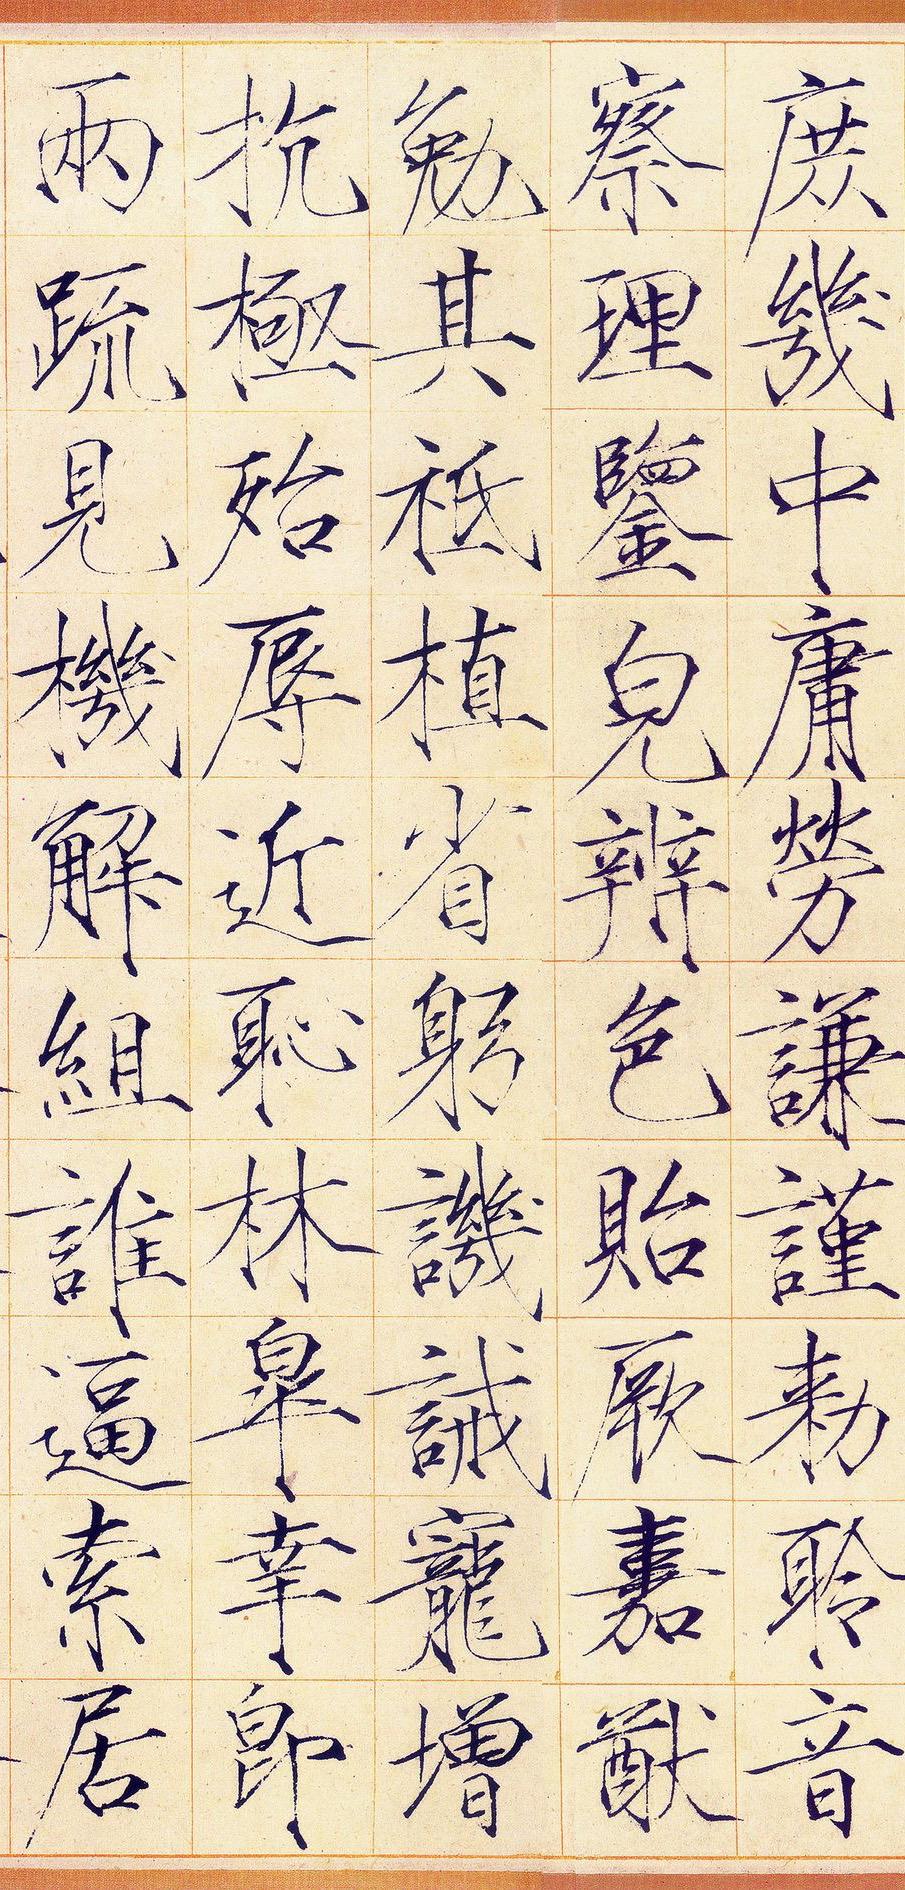 庶幾中庸勞謙謹勑聆音
察理鑒皃辨色貽厥嘉猷
勉其祗植省躬譏誡寵增
抗極殆辱近恥林皐幸即
兩疏見機解組誰逼索居